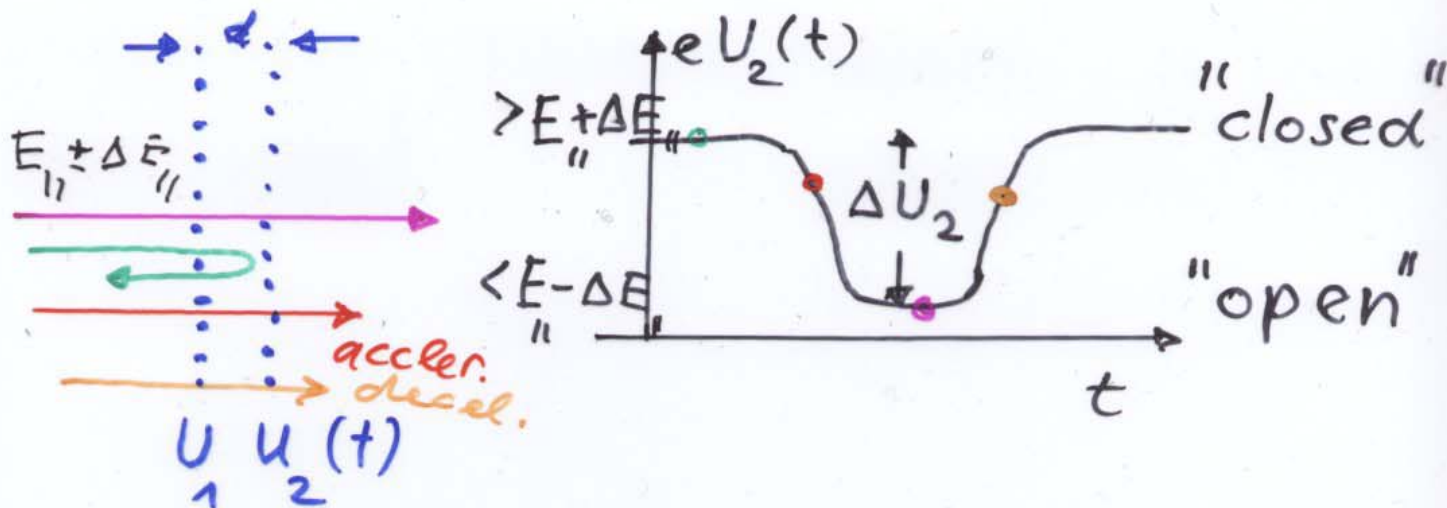 d
E_∥ ± ΔE_∥
accler.
decel.
U_1 U_2(t)
eU_2(t)
>E_∥+ΔE_∥
<E_∥-ΔE_∥
ΔU_2
"closed"
"open"
t